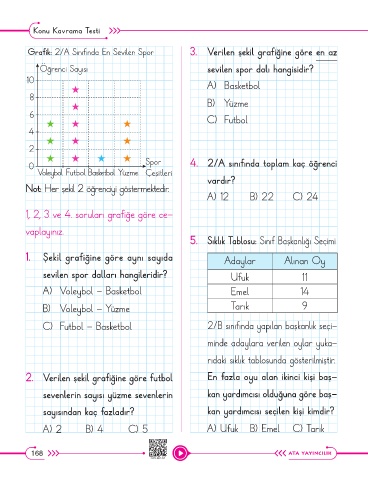 Konu Kavrama Testi
Grafik: 2/A Sınıfında En Sevilen Spor
Öğrenci Sayısı
10
8
6
4
2
0
Spor
Çeşitleri
Voleybol Futbol Basketbol Yüzme
Not: Her şekil 2 öğrenciyi göstermektedir.
1, 2, 3 ve 4. soruları grafiğe göre ce-
vaplayınız.
1. Şekil grafiğine göre aynı sayıda
sevilen spor dalları hangileridir?
A) Voleybol – Basketbol
B) Voleybol – Yüzme
C) Futbol – Basketbol
2. Verilen şekil grafiğine göre futbol
sevenlerin sayısı yüzme sevenlerin
sayısından kaç fazladır?
A) 2 B) 4 C) 5
3. Verilen şekil grafiğine göre en az
sevilen spor dalı hangisidir?
A) Basketbol
B) Yüzme
C) Futbol
4. 2/A sınıfında toplam kaç öğrenci
vardır?
A) 12 B) 22 C) 24
5. Sıklık Tablosu: Sınıf Başkanlığı Seçimi
Adaylar Alınan Oy
Ufuk 11
Emel 14
Tarık 9
2/B sınıfında yapılan başkanlık seçi-
minde adaylara verilen oylar yuka-
rıdaki sıklık tablosunda gösterilmiştir.
En fazla oyu alan ikinci kişi baş-
kan yardımcısı olduğuna göre baş-
kan yardımcısı seçilen kişi kimdir?
A) Ufuk B) Emel C) Tarık
168
ATA YAYINCILIK